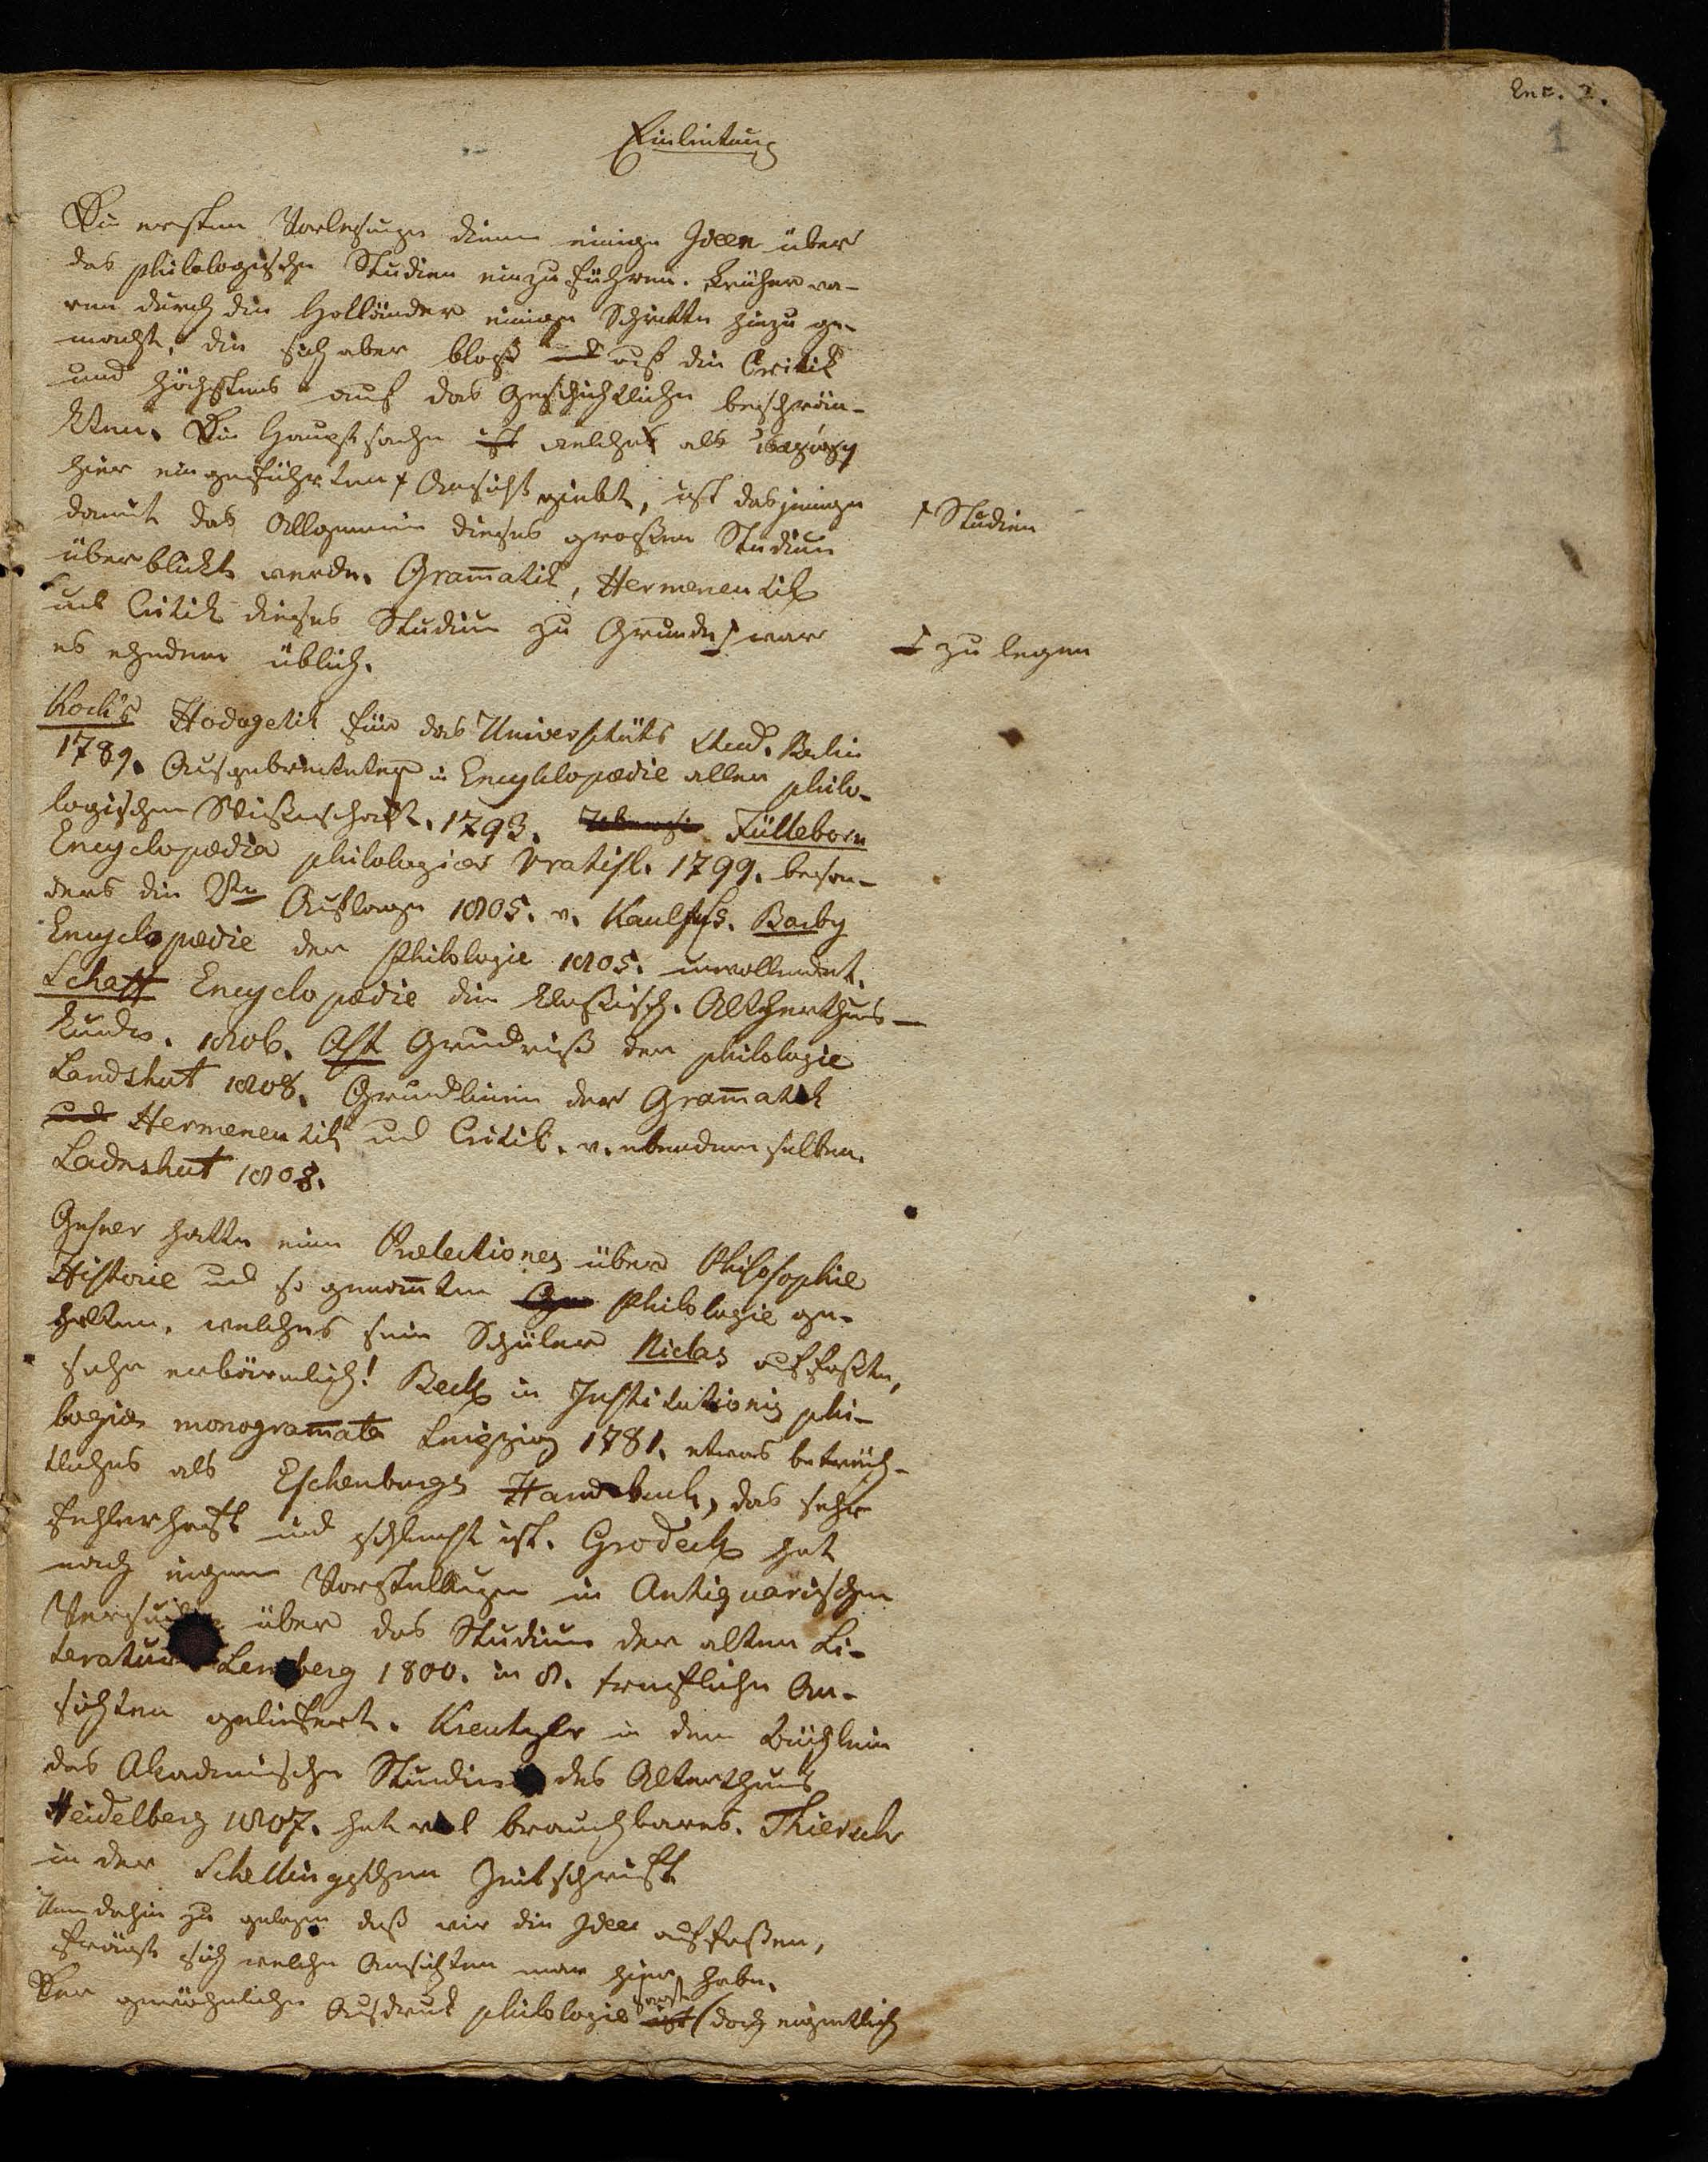 Enc. 2.
1
Einleitung
Die ersten Vorlesungen dienen einige Ideen über
das philologische Studien einzuführen. Früher wa-
ren durch die Holländer einige Schritte hiezu ge-
macht, die sich aber bloß und auf die Critik
und höchstens auf das Geschichtliche beschrän-
kten. Die Hauptsache ist welche als
hier eingeführten Ansicht giebt, ist dasjenige
† Studien
damit das Allgemeine dieses großen Studium
überblickt werde. Gram̄atik, Hermeneutik
und Critik dieses Studium zu Grunde war
zu legen
es ehedem üblich.
Koch's Hodegetik für das Universitäts Stud. Berlin
1789. Ausgebreiteter in Encyklopædie allen philo-
logischen Wißenschaft. 1793. Fülleborn
Encyclopædia philologica Vratisl. 1799. beson-
ders die 2te Auflage 1805. v. Kaulfuss. Barby
Encyclopædie der Philologie 1805. unvollendet.
Schaff Encyclopædie die klaßisch. Altherthums-
kunde. 1806. Ast Grundriß der philologie
Landshut 1808. Grundlinien der Gram̄atik
und Hermeneutik und Critik. v. ebendemselben.
Ladnshut 1808.
Gesner hatte eine Prælectiones über Philosophie
Historie und so genan̄ten Philologie ge-
halten, welches sein Schüler Niclas auffaßte,
sehr erbärmlich! Beck in Institutionis phi-
logiæ monogram̄ata Leipzig 1781. etwas beträch-
tliches als Eschenburgs Handbuch, das sehr
fehlerhaft und schlecht ist. Grodeck hat
nach eigenen Vorstellungen in Antiquarischen
Versuchen über das Studium der alten Li-
teratur Lemberg 1800. in 8. trefliche An-
sichten geliefert. Kreutzer in dem Büchlein
das Akademische Studium des Alterthums
Heidelberg 1807. hat viel brauchbares. Thiersch
in der Schellingschen Zeitschrift
Um dahin zu gelangen daß wir die Idee auffaßen,
frägt sich welche Ansichten man hier habe.
Der gewöhnliche Ausdruck philologie ist (doch eigentlich